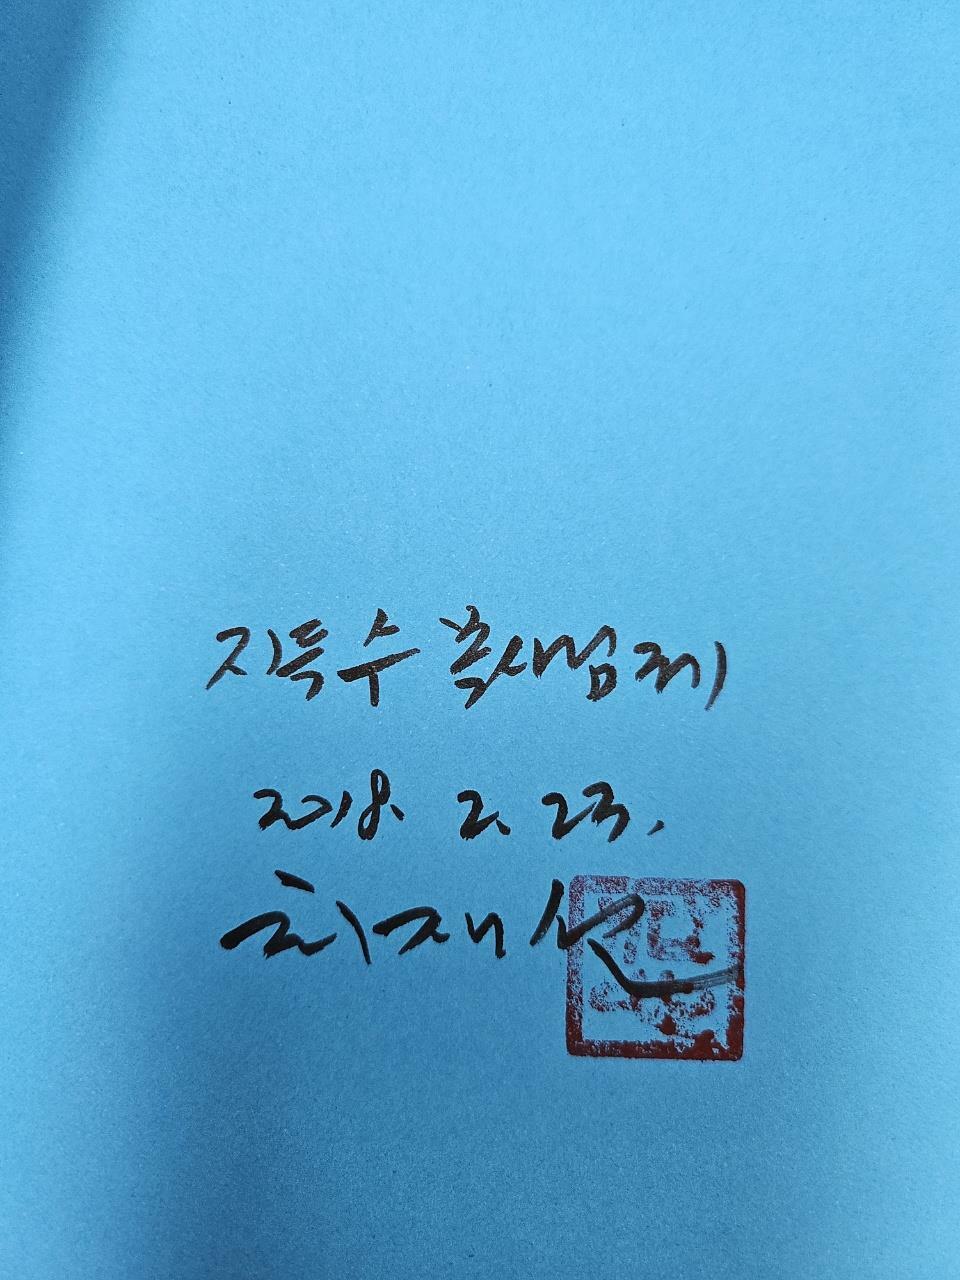 지득수 목사님께
2018. 2. 23.
최재선